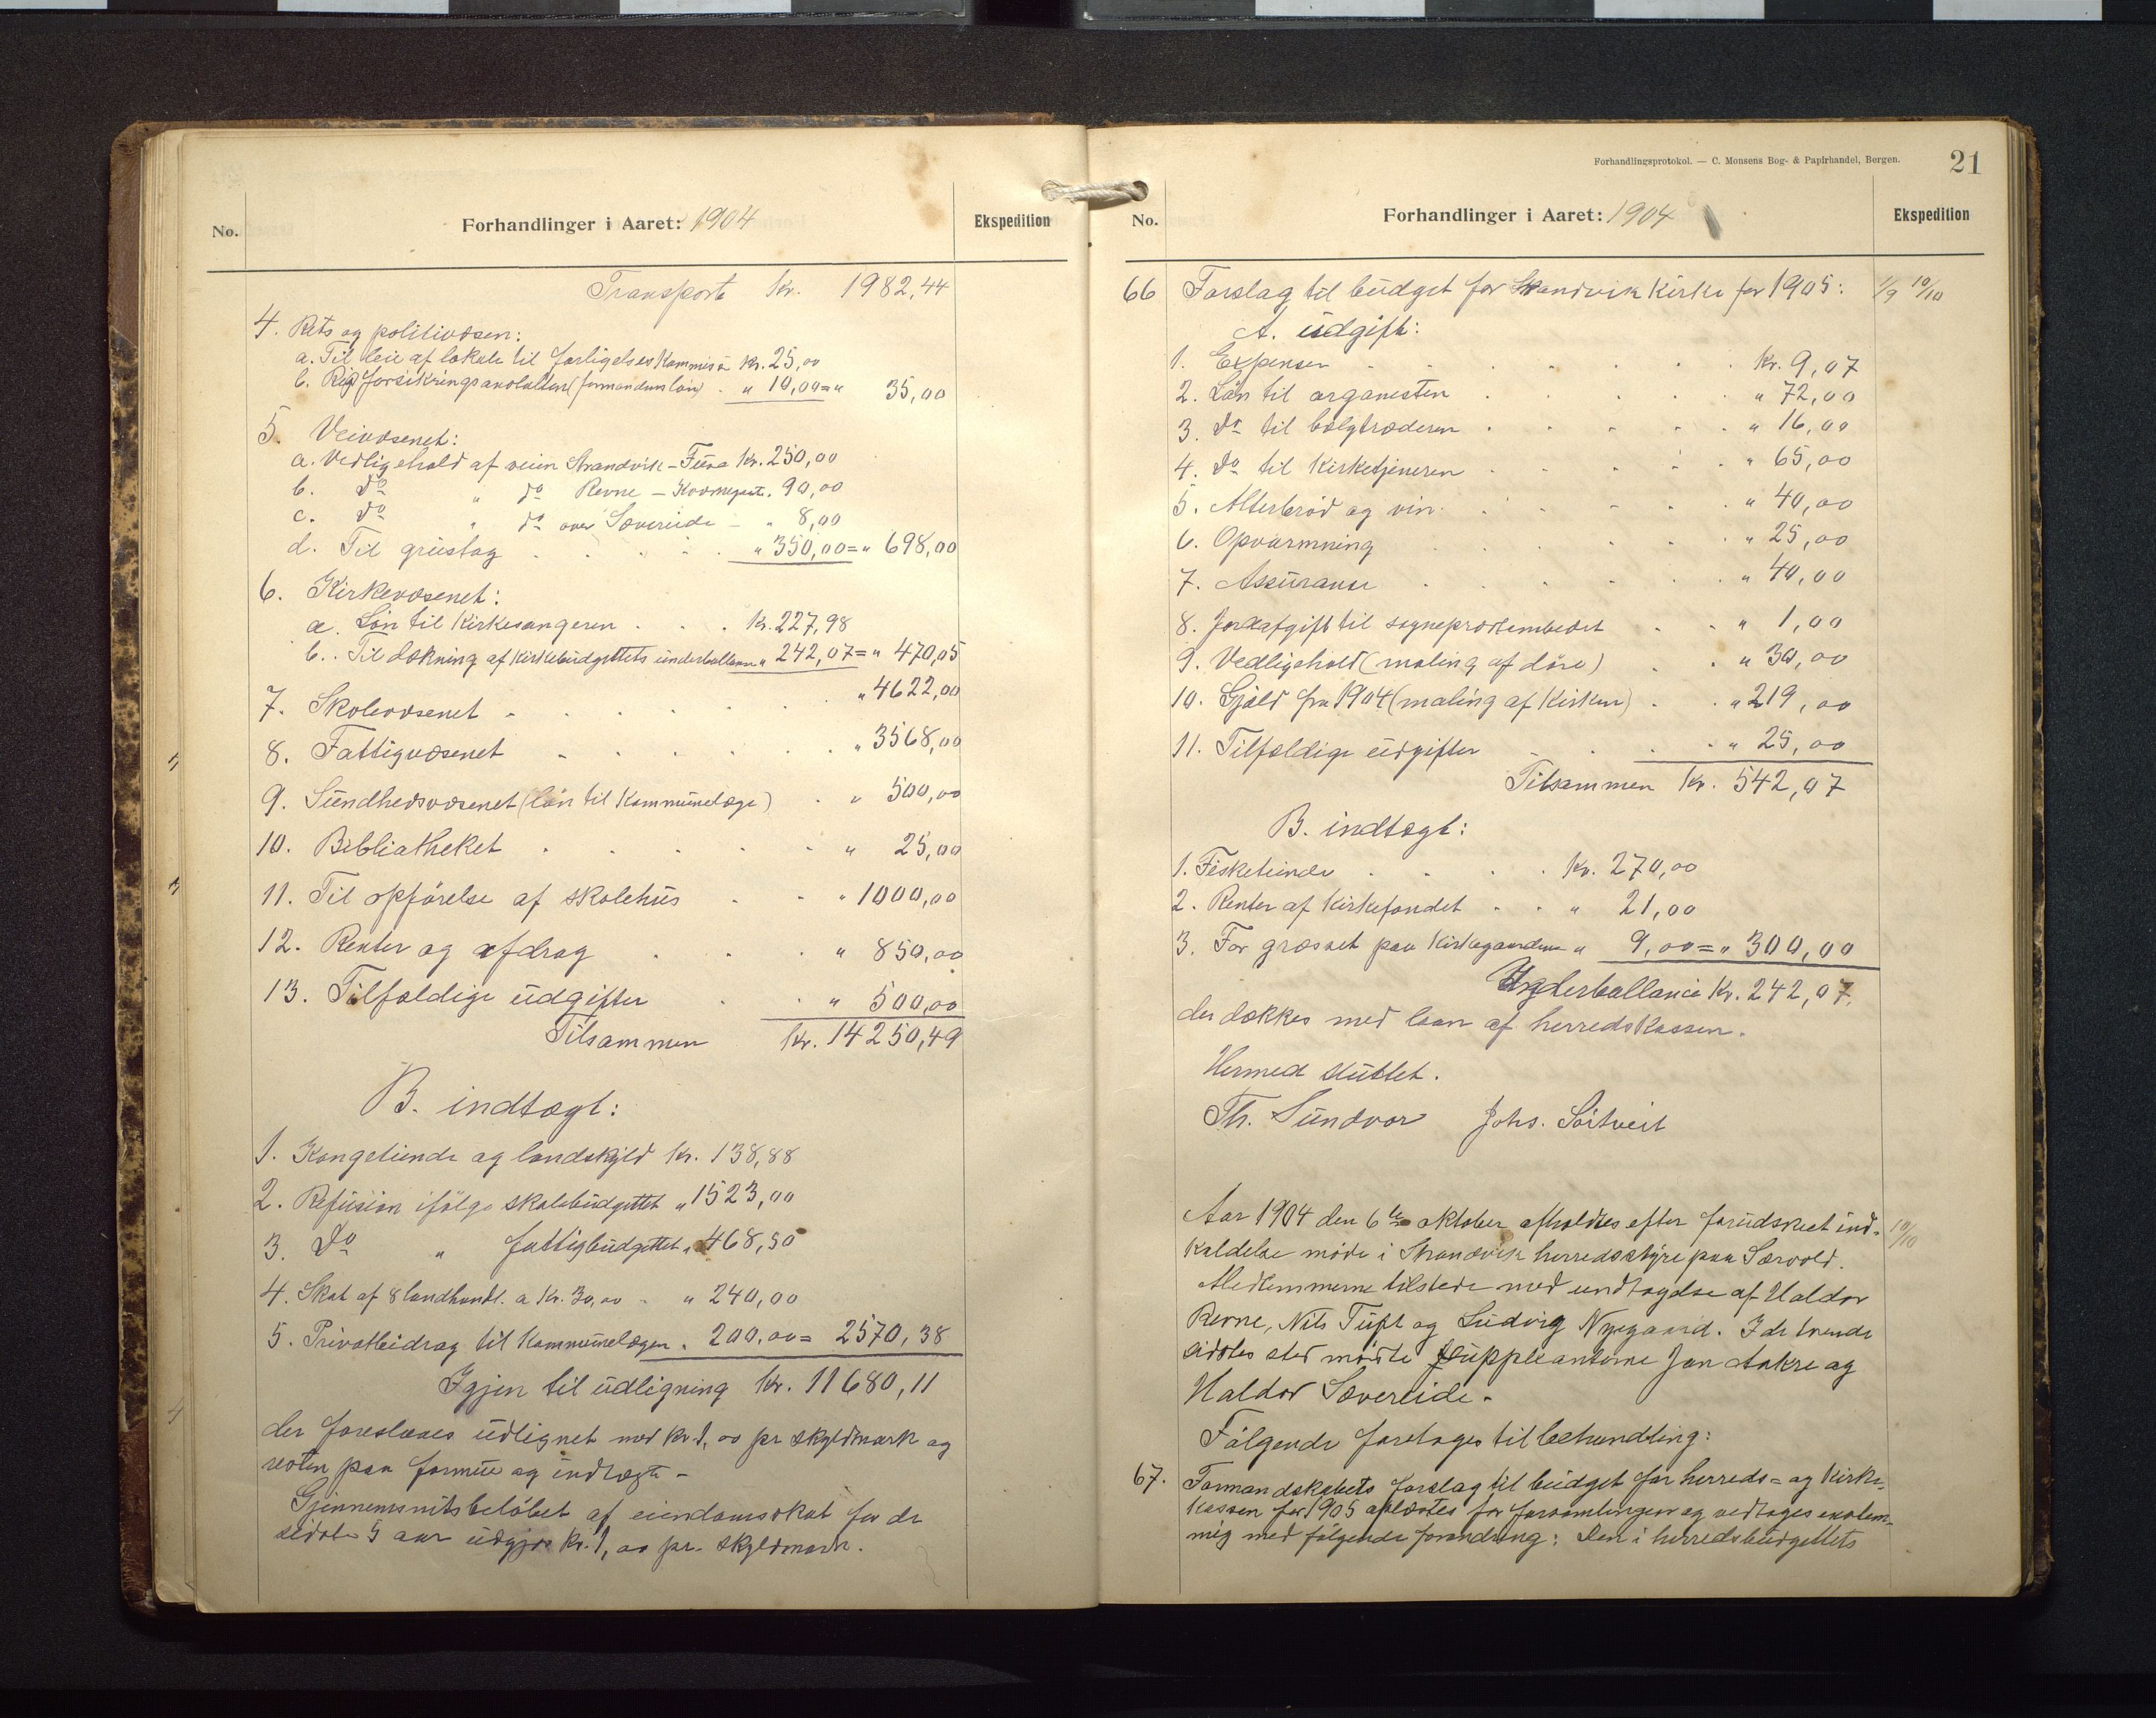 No.
Forhandlinger i Aaret: 1904
Ekspedition
Transport Kr. 1982,44
4. Rets og politivæsen:
a. Til leie af lokale til forligelseskommis.n Kr. 25,00
b. Rigsforsikringsanstalten (formandens løn) . " 10,00 = " 35,00
5. Veivæsenet:
a. Vedligehold af veien Strandvik - Fusa Kr. 250,00
b. Do " do Revne - . 90,00
c. Do " do over Sævereide - " 8,00
d. Til grustag . . . . . " 350,00 = " 698,00
6. Kirkevæsenet:
a. Løn til Kirkesangeren . . . Kr. 227,98
b. Til dækning af Kirkebudgettets underballanse " 242,07 = " 470,05
7. Skolevæsenet . . . . . . " 4622,00
8. Fattigvæsenet . . . . . . " 3568,00
9. Sundhedsvæsenet (løn til Kommunelæge) . " 500,00
10. Bibliotheket . . . . . " 25,00
11. Til opførelse af skolehus . . " 1000,00
12. Renter og afdrag . . . " 850,00
13. Tilfældige udgifter . . " 500,00
Tilsammen Kr. 14250,49
B. indtægt:
1. Kongetiende og landskyld Kr. 138,88
2. Refusion ifølge skolebudgettet " 1523,00
3. Do " fattigbudgettet " 468,50
4. Skat af 8 landhandl. a Kr. 30,00 - " 240,00
5. Privatbidrag til Kommunelægen " 200,00 = 2570,38
Igjen til udligning Kr. 11680,11
der foreslaaes udlignet med Kr. 1,00 pr skyldmark og
resten paa formue og indtægt -
Gjennemsnitsbeløbet af eiendomsskat for de
sidste 5 aar udgjør Kr. 1,00 pr. skyldmark.
Forhandlingsprotokol. — C. Monsens Bog- & Papirhandel, Bergen.
21
No.
Forhandlinger i Aaret: 1904
Ekspedition
66 Forslag til budget for Strandvik Kirke for 1905: 1/9 10/10
A. udgift:
1. Expenser . . . . . . Kr. 9,07
2. Løn til organisten . . . . . " 72,00
3. Do til bælgtræderen . . . . . " 16,00
4. Do til Kirketjeneren . . . . . " 65,00
5. Alterbrød og vin . . . . . " 40,00
6. Opvarmning . . . . . " 25,00
7. Assurance . . . . . " 40,00
8. Jordafgift til sogneprestembedet . . " 1,00
9. Vedligehold (maling af døre) . . " 30,00
10. Gjæld fra 1904 (maling af Kirken) . . " 219,00
11. Tilfældige udgifter . . . . " 25,00
Tilsammen Kr. 542,07
B. indtægt:
1. Fisketiende . . . . Kr. 270,00
2. Renter af Kirkefondet . . " 21,00
3. For græsset paa Kirkegaarden " 9,00 = " 300,00
Underballance Kr. 242,07.
der dækkes med laan af herredskassen.
Hermed sluttet.
Th. Sundvor Johs. Søitveit
Aar 1904 den 6te oktober afholdtes efter forudskeet ind- 10/10
kaldelse møde i Strandvik herredsstyre paa Særvold.
Medlemmerne tilstede med undtagelse af Haldor
Revne, Nils Tuft og Ludvig Nygaard. I de tvende
sidstes sted mødte suppleanterne Jon Aakre og
Haldor Sævereide.
Følgende foretoges til behandling:
67. Formandskabets forslag til budget for herreds- og Kirke-
Kassen for 1905 oplæstes for forsamlingen og vedtoges enstem-
mig med følgende forandring: Den i herredsbudgettets